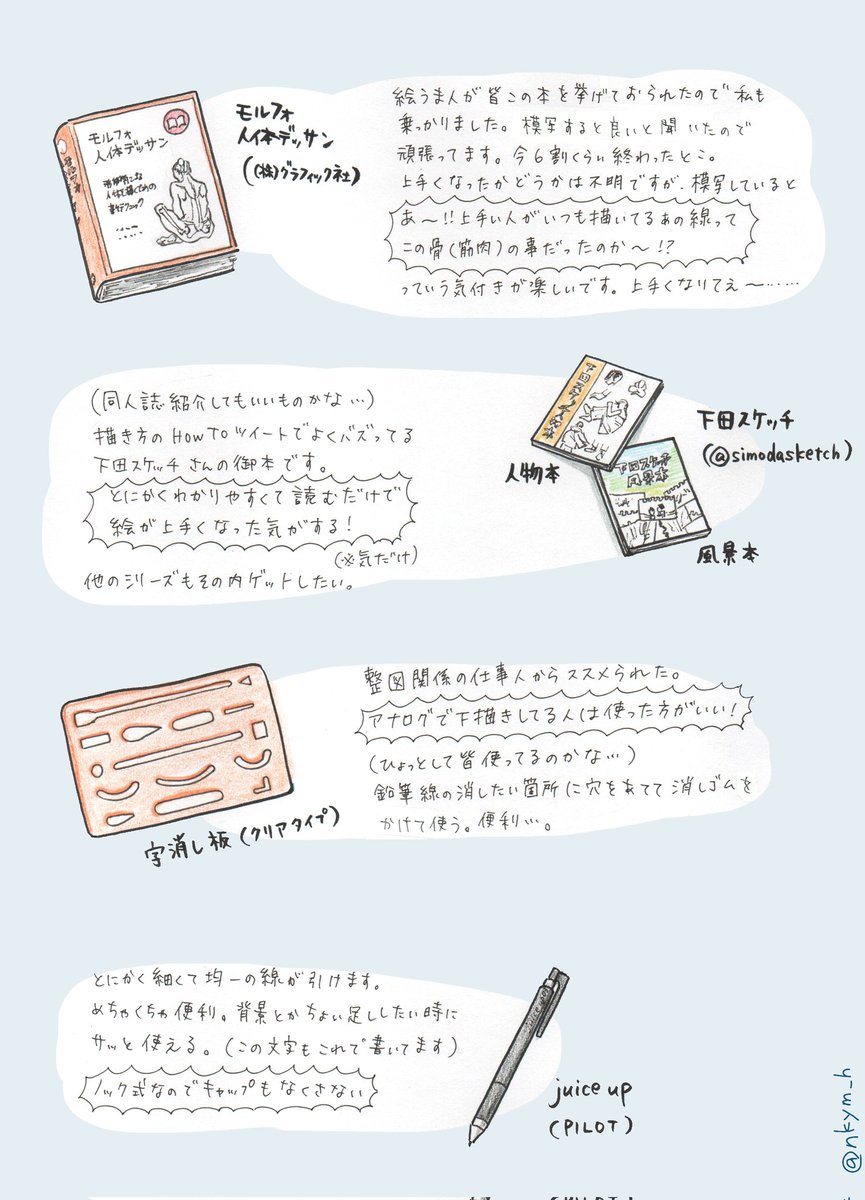 モルフォ
人体デッサン
((株)グラフィック社)
モルフォ
人体デッサン
絵うま人が皆この本を挙げておられたので私も
乗っかりました。模写すると良いと聞いたので
頑張ってます。今6割くらい終わったとこ。
上手くなったかどうかは不明ですが、模写していると
あ〜!!上手い人がいつも描いてるあの線って
この骨(筋肉)の事だったのか〜!?
っていう気付きが楽しいです。上手くなりてえ〜……
(同人誌紹介してもいいものかな…)
描き方のHow Toツイートでよくバズってる
下田スケッチさんの御本です。
とにかくわかりやすくて読むだけで
絵が上手くなった気がする!
(※気だけ)
他のシリーズもその内ゲットしたい。
下田スケッチ人物本
下田スケッチ
風景本
人物本
下田スケッチ
(@simodasketch)
風景本
字消し板(クリアタイプ)
整図関係の仕事人からススメられた。
アナログで下描きしてる人は使った方がいい!
(ひょっとして皆使ってるのかな…)
鉛筆線の消したい箇所に穴をあてて消しゴムを
かけて使う。便利…。
とにかく細くて均一の線が引けます。
めちゃくちゃ便利。背景とかちょい足ししたい時に
サッと使える。(この文字もこれで書いてます)
ノック式なのでキャップもなくさない
juice up
(PILOT)
@nkym_h